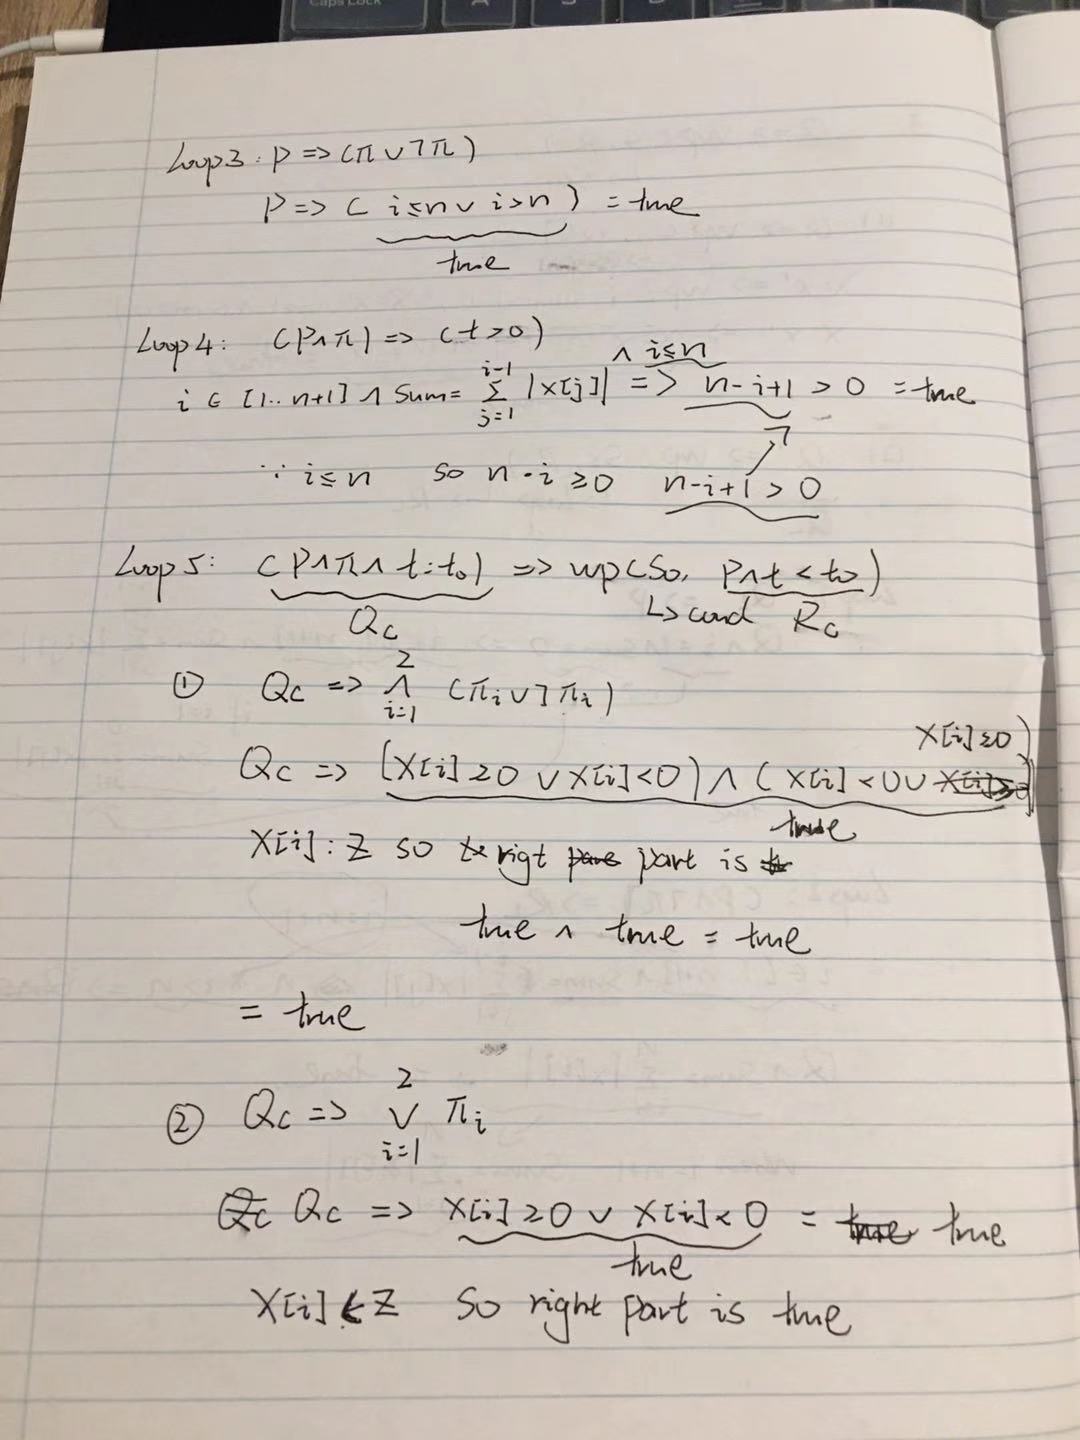 Caps Lock
A
S
D
Loop3: P => (π ∨ ¬π)
P => ( i≤n ∨ i>n ) = true
true
Loop4: (P∧π) => (t>0)
i ∈ [1..n+1] ∧ Sum = \sum_{j=1}^{i-1} |x[j]| ∧ i≤n => n-i+1 > 0 = true
∵ i≤n so n-i ≥0 n-i+1 > 0
Loop5: (P∧π∧ t=t₀) => wp(S₀, P∧t < t₀)
Qc ↳ cond Rc
① Qc => \bigwedge_{i=1}^{2} (πi ∨ ¬πi)
Qc => (x[i] ≥0 ∨ x[i]<0) ∧ (x[i] <0 ∨ x[i]≥0)
true
x[i]: Z so rigt part is
true ∧ true = true
= true
② Qc => \bigvee_{i=1}^{2} πi
Qc => x[i] ≥0 ∨ x[i] < 0 = true
true
x[i] ∈ Z so right part is true